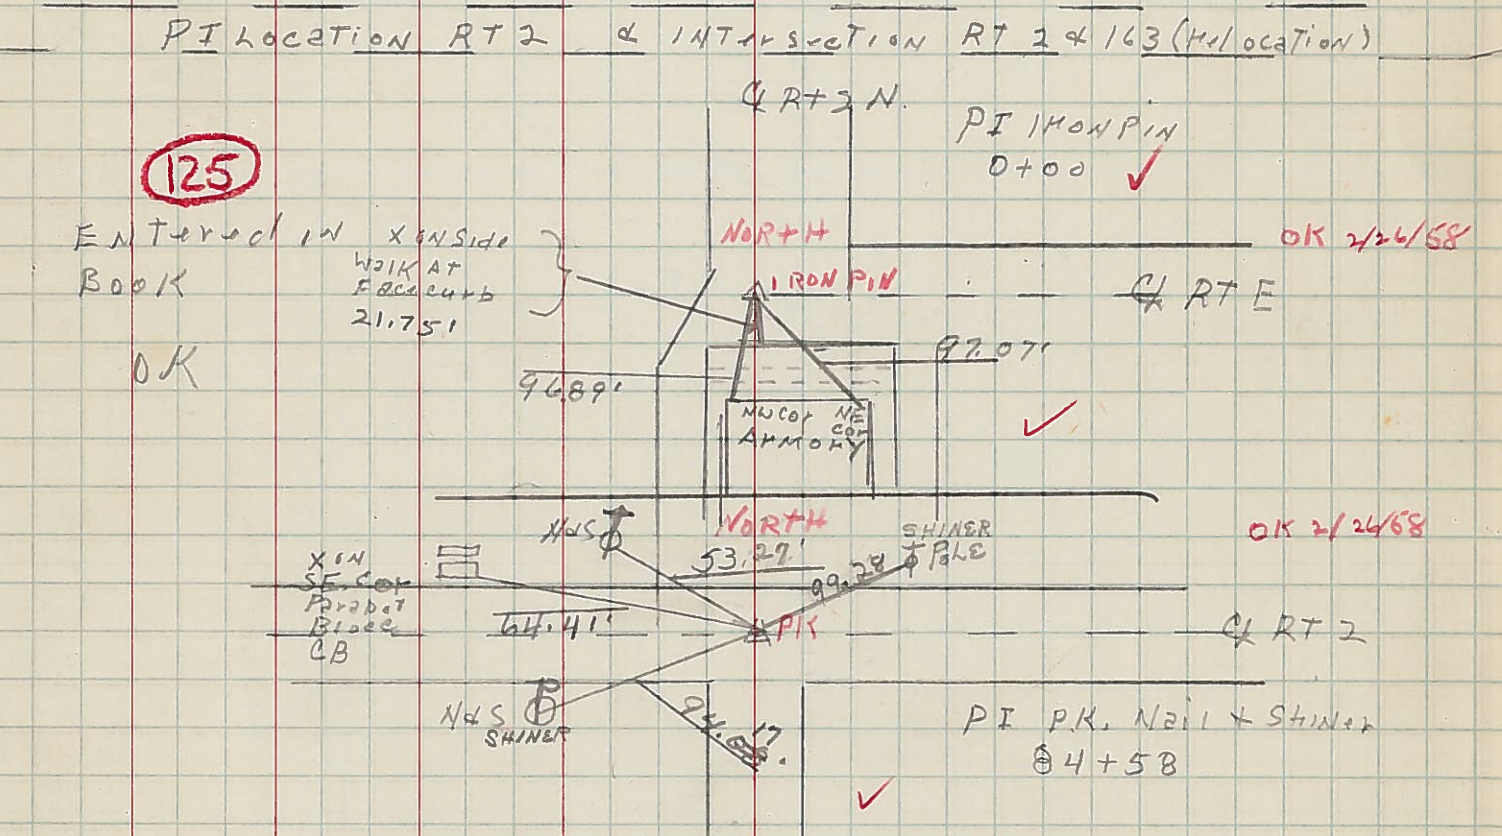 PI Location RT 2 & Intersection RT 2 & 163 (Relocation)
℄ Rt 2 N.
PI IRON PIN
0+00
125
Entered in
Book
OK
X ON Side
Walk At
Face curb
21.75'
NORTH
OK 2/26/58
IRON PIN
℄ RT E
97.07'
96.89'
NW Cor NE
Cor
ARMORY
NORTH
OK 2/26/58
N&S
SHINER
POLE
53.27'
99.28
X ON
SE. Cor
Parapet
CB
64.41'
PK
℄ RT 2
N&S
SHINER
94.17'
PI P.K. Nail + Shiner
4+58